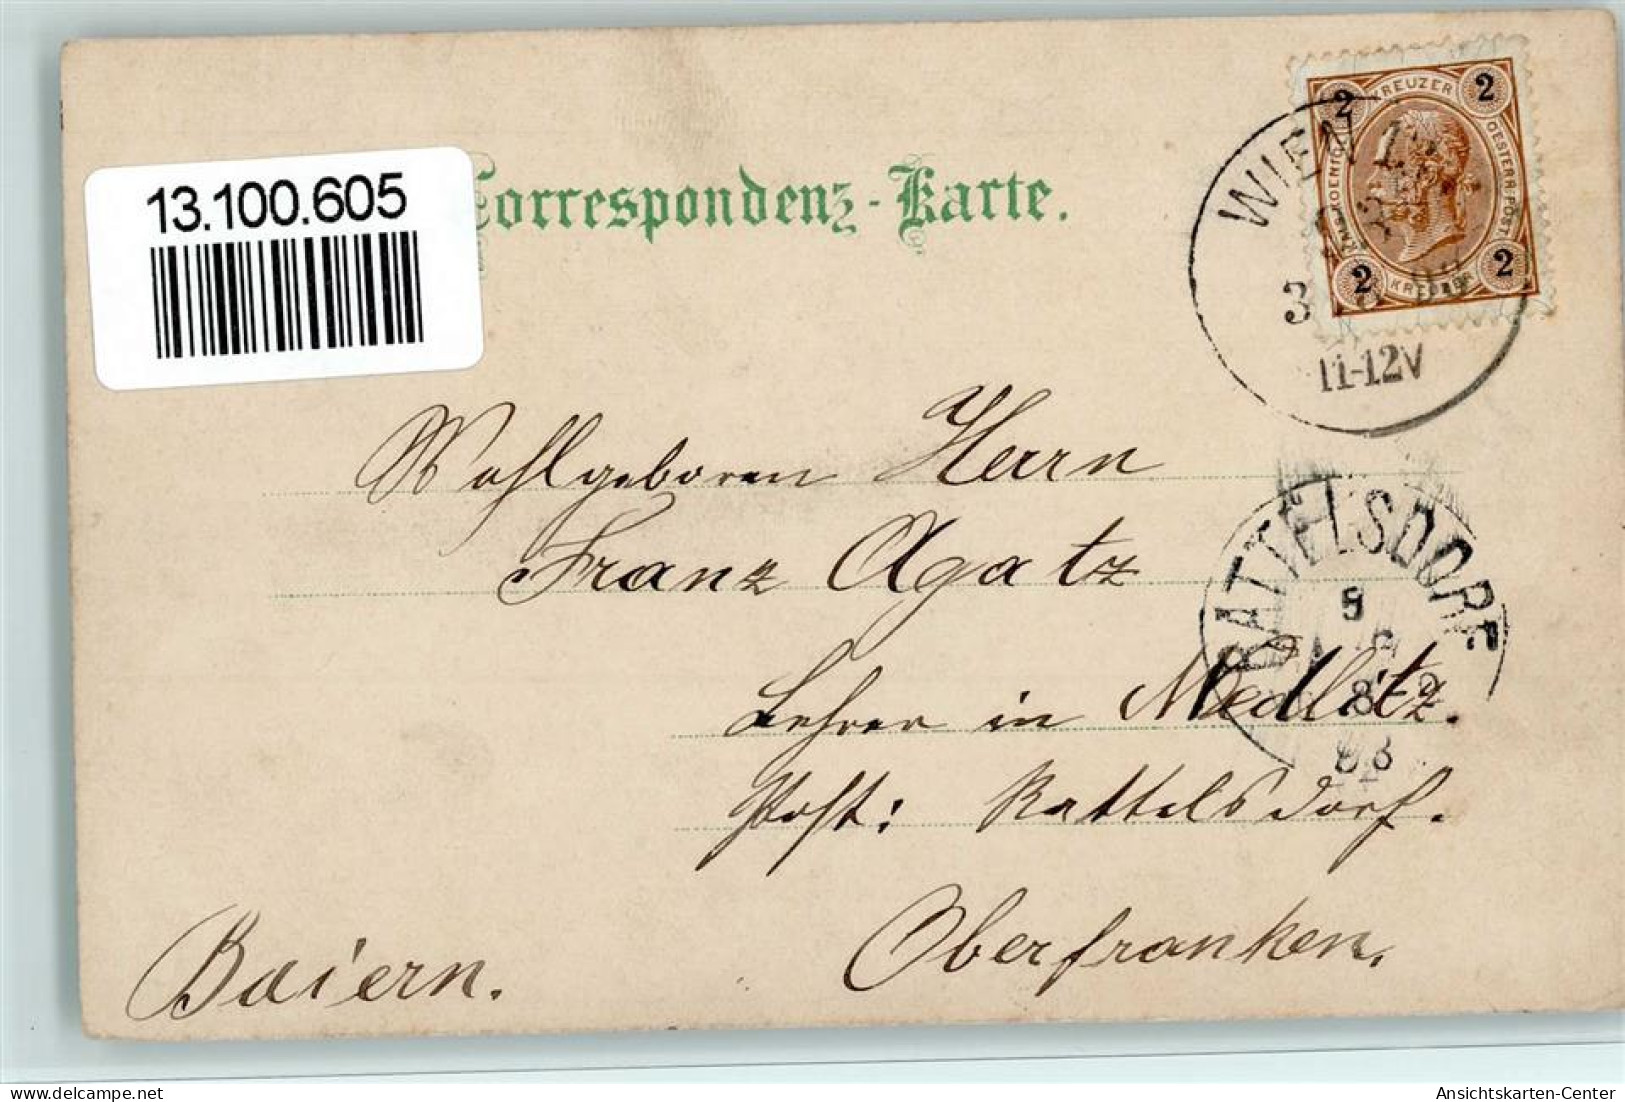 13.100.605
Correspondenz-Karte.
2 KREUZER 2
KAIS. KOENIGL. OESTERR. POST.
2 KREUZER 2
WIEN 1
3
11-12V
Wohlgeboren Herrn
Franz Agatz
Lehrer in Medlitz.
Post: Rattelsdorf.
Oberfranken.
Baiern.
RATTELSDORF
8-9
98
Ansichtskarten-Center